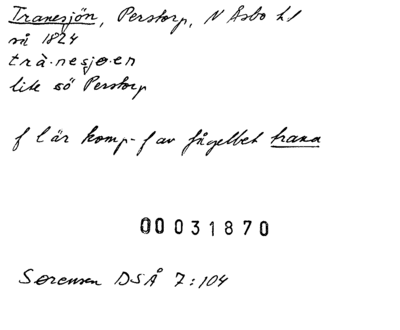 Tranesjön, Perstorp, N Åsbo hd
så 1824
trà·nesjo·en
lite sö Perstorp
f l är komp-f av fågelbet trana
00031870
Sørensen DSÅ 7:104